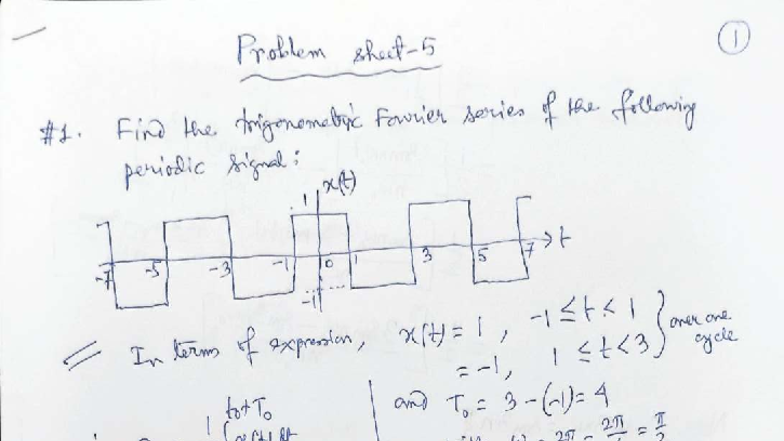 Problem sheet-5
1
#1. Find the trigonometric Fourier series of the following
periodic signal:
x(t)
1
-7 -5 -3 -1 0 1 3 5 7 t
-1
In terms of expression, x(t) = 1, -1 ≤ t < 1
= -1, 1 ≤ t < 3 } over one cycle
and T₀ = 3-(-1) = 4
t₀+T₀
x(t) dt
2π = 2π = π